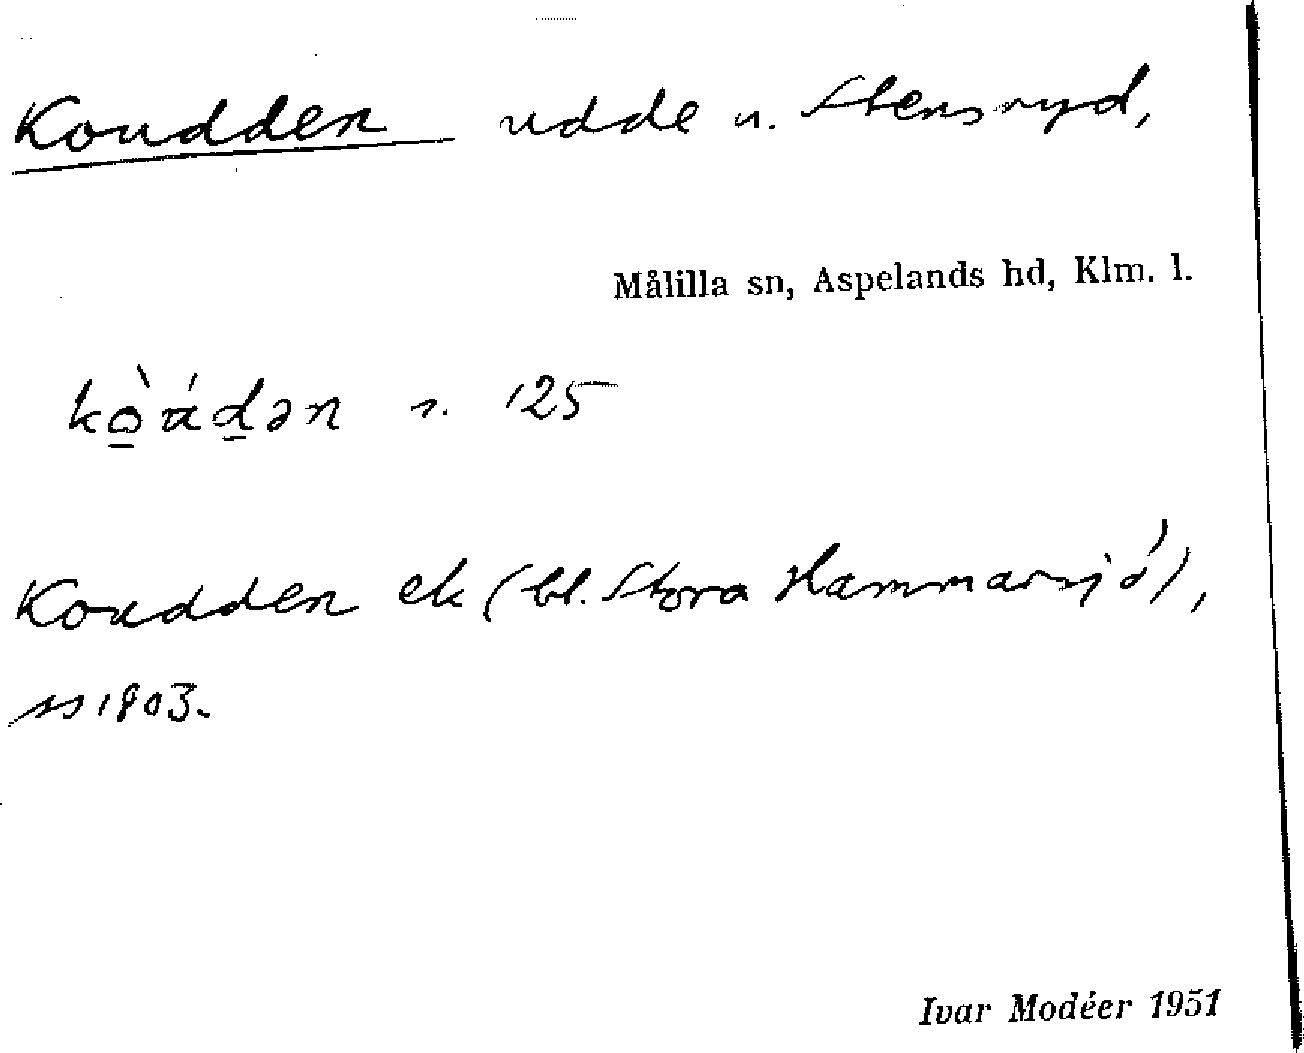 Koudden udde u. Stensryd,
Målilla sn, Aspelands hd, Klm. l.
kò̲úd̲ən r. 125
Koudden ek (bl. Stora Hammarsjö),
ss 1803.
Ivar Modéer 1951